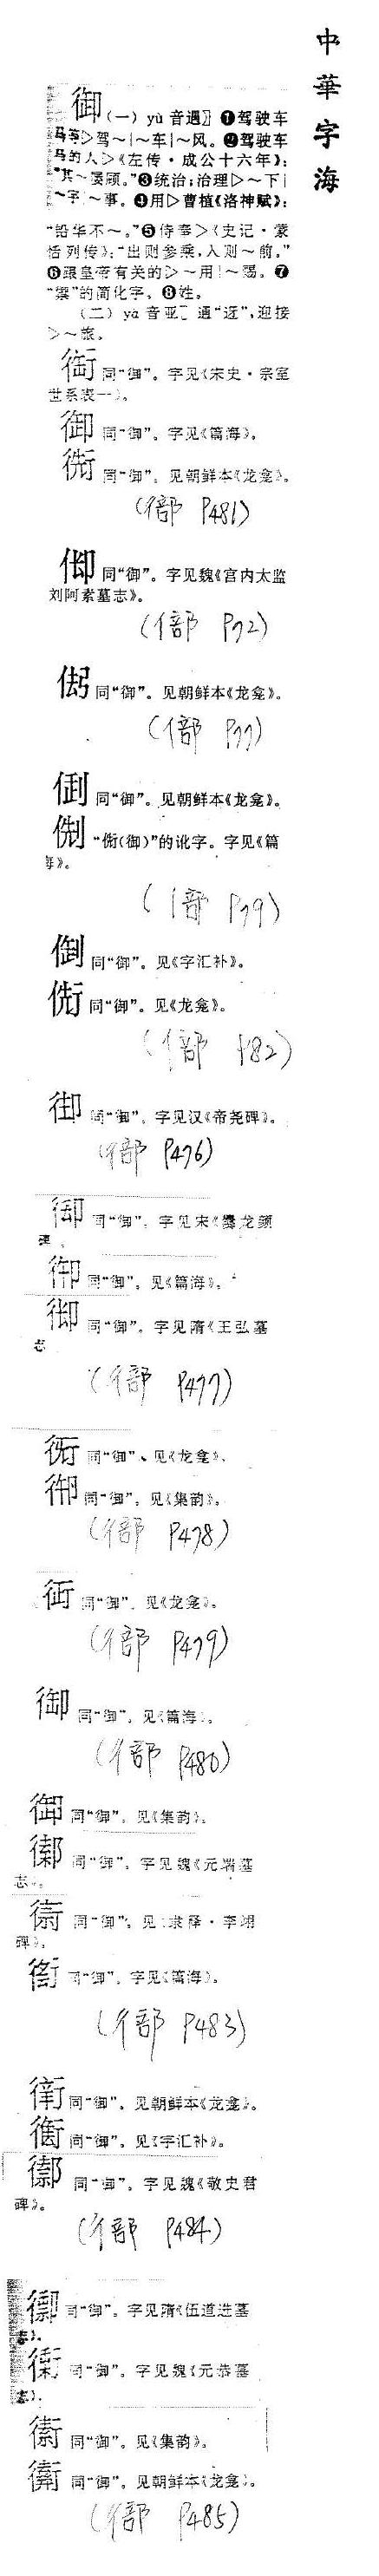 中華字海
御(一) yù 音遇〗❶驾驶车
马等▷驾～|～车|～风。❷驾驶车
马的人▷《左传·成公十六年》:
“其～屡顾。”❸统治;治理▷～下|
～宇|～事。❹用▷曹植《洛神赋》:
“铅华不～。”❺侍奉▷《史记·蒙
恬列传》:“出则参乘,入则～前。”
❻跟皇帝有关的▷～用|～赐。❼
“禦”的简化字。❽姓。
(二) yà 音亚〖通“迓”,迎接
▷～旅。
同“御”。字见《宋史·宗室
世系表一》。
同“御”。字见《篇海》。
同“御”。见朝鲜本《龙龛》。
(彳部 P481)
同“御”。字见魏《宫内太监
刘阿素墓志》。
(亻部 P72)
同“御”。见朝鲜本《龙龛》。
(亻部 P77)
同“御”。见朝鲜本《龙龛》。
“衘(御)”的讹字。字见《篇
海》。
(亻部 P79)
同“御”。见《字汇补》。
同“御”。见《龙龛》。
(亻部 P82)
同“御”。字见汉《帝尧碑》。
(彳部 P476)
同“御”。字见宋《爨龙颜
碑》。
同“御”。见《篇海》。
同“御”。字见隋《王弘墓
志》
(彳部 P477)
同“御”。见《龙龛》。
同“御”。见《集韵》。
(彳部 P478)
同“御”。见《龙龛》。
(彳部 P479)
同“御”。见《篇海》。
(彳部 P480)
同“御”。见《集韵》。
同“御”。字见魏《元端墓
志》。
同“御”。见《隶释·李翊
碑》。
同“御”。字见《篇海》。
(彳部 P483)
同“御”。见朝鲜本《龙龛》。
同“御”。见《字汇补》。
同“御”。字见魏《敬史君
碑》。
(彳部 P484)
同“御”。字见隋《伍道进墓
志》。
同“御”。字见魏《元恭墓
志》。
同“御”。见《集韵》。
同“御”。见朝鲜本《龙龛》。
(彳部 P485)